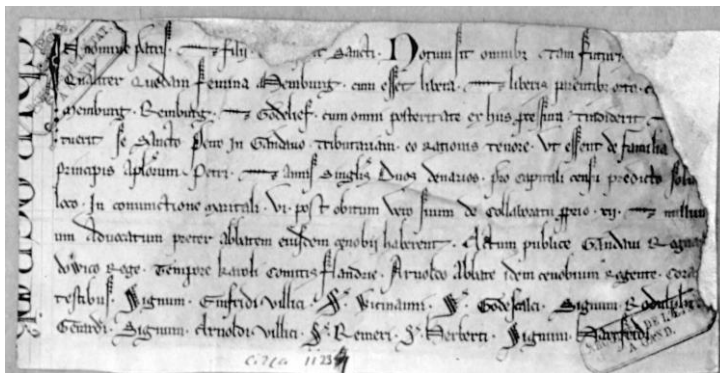 In nomine patris ⁊ filii et sancti. Notum sit omnibꝫ tam futuri
Qualiter Quedam femina Memburg. cum esset libera. ⁊ liberis parentibus orta.
Memburg. Remburg. ⁊ Godelief. cum omni posteritate ex his pressura. tradiderit ⁊
tuerit se Sancto Petro In Gandavo. tributariam. eo rationis tenore. Ut essent de familia
principis apłorum Petri. ⁊ annis singlis Duos denarios. pro capitali censu predicto
loco. In coniunctione maritali. vi. post obitum vero suum de Collaboratu pprio. xij. ⁊ nullum
um advocatum preter abbatem eiusdem cenobii haberent. Actum publice Gandavi Regnante
dowico Rege. Tempore karoli Comitis flandrie. Arnoldo Abbate idem cenobium regente. Cora
testibus. Signum. Enfridi villici. S. Wicmanni. S. Godescalci. Signum Rodulphi
Gerardi. Signum. Arnoldi villici. S. Remeri. S. Herberti. Signum.
circa 1123